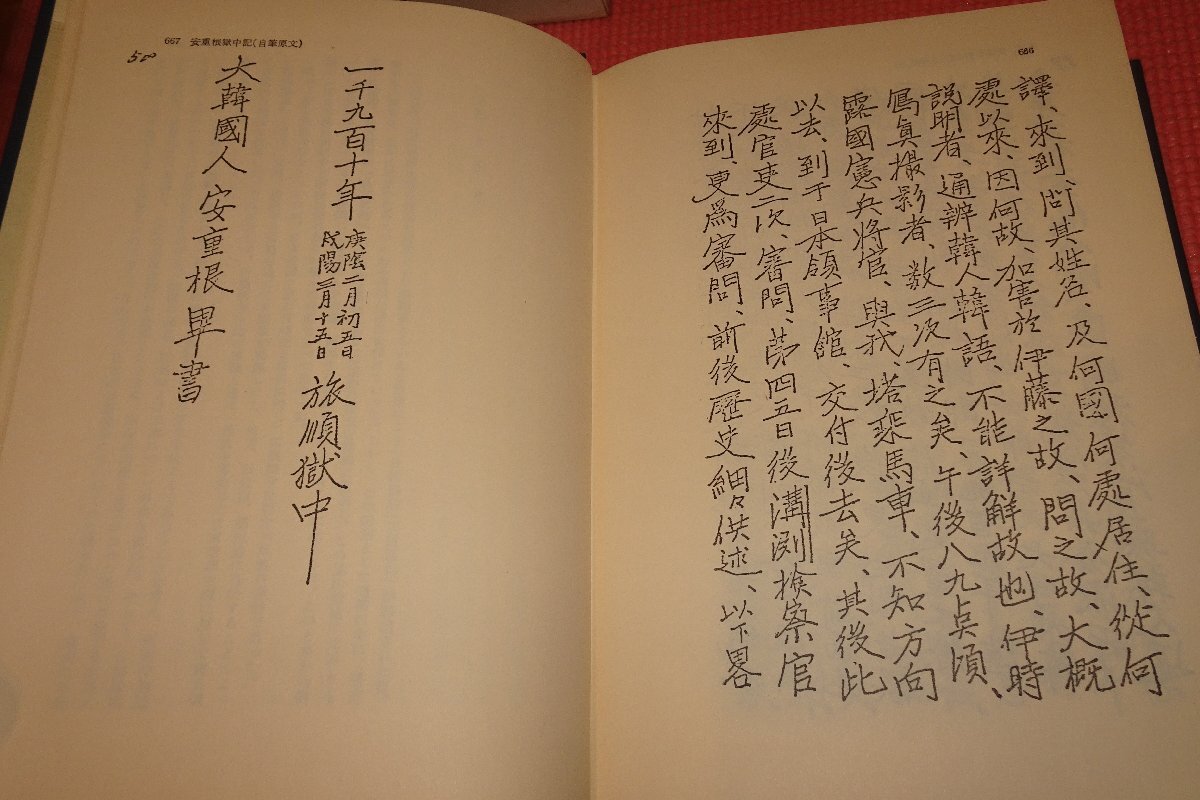 686
譯、來到、問其姓名、及何國何處居住、從何
處以來、因何故、加害於伊藤之故、問之故、大概
說明者、通辨韓人韓語、不能詳解故也、伊時
寫眞撮影者、數三次有之矣、午後八九点頃、
露國憲兵將官、與我、塔乘馬車、不知方向
以去、到于日本領事舘、交付後去矣、其後此
處官吏二次、審問、第四五日後溝渕撿察官
來到、更爲審問、前後歷史細々供述、以下畧
667 安重根獄中記(自筆原文)
500
一千九百十年 庚陰二月初五日
戌陽三月十五日 旅順獄中
大韓國人 安重根 畢書